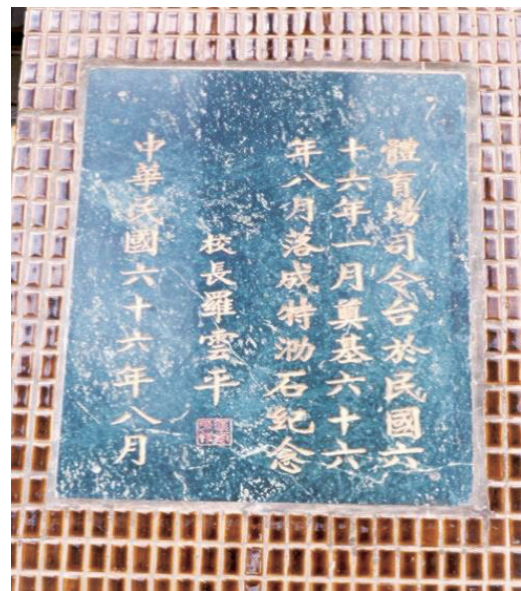 體育場司令台於民國六
十六年一月奠基六十六
年八月落成特泐石紀念
校長羅雲平
中華民國六十六年八月